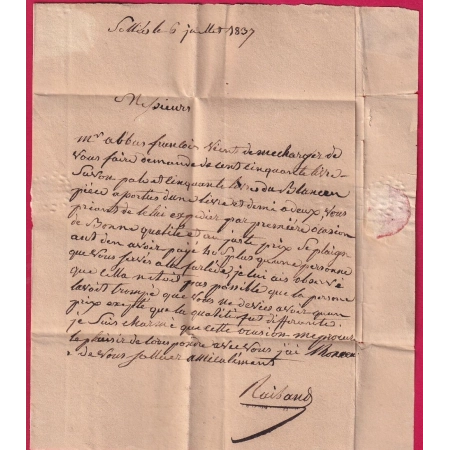 Solliès le 6 juillet 1837
Messieurs
Mr abbas francois vient de me charger de
vous faire demande de cent cinquante livres
savon pale et cinquante livres du Blanc en
pièce a porties d'une livre et demi a deux vous
priant de le lui expedier par première ocasion
de Bonne qualité et au juste prix se plaign
ant d'en avoir payé 40 s plus qu'une personne
que vous servés a la je lui ais observé
que cella n'etoit pas possible que la personne
l'avoit trompé que vous ne deviés avoir qu'un
prix exepté que la qualité fut differante.
je suis charmé que cette ocasion me procure
le plaisir de correspondre avec vous j'ai l'honneur
de vous salluer amicalement